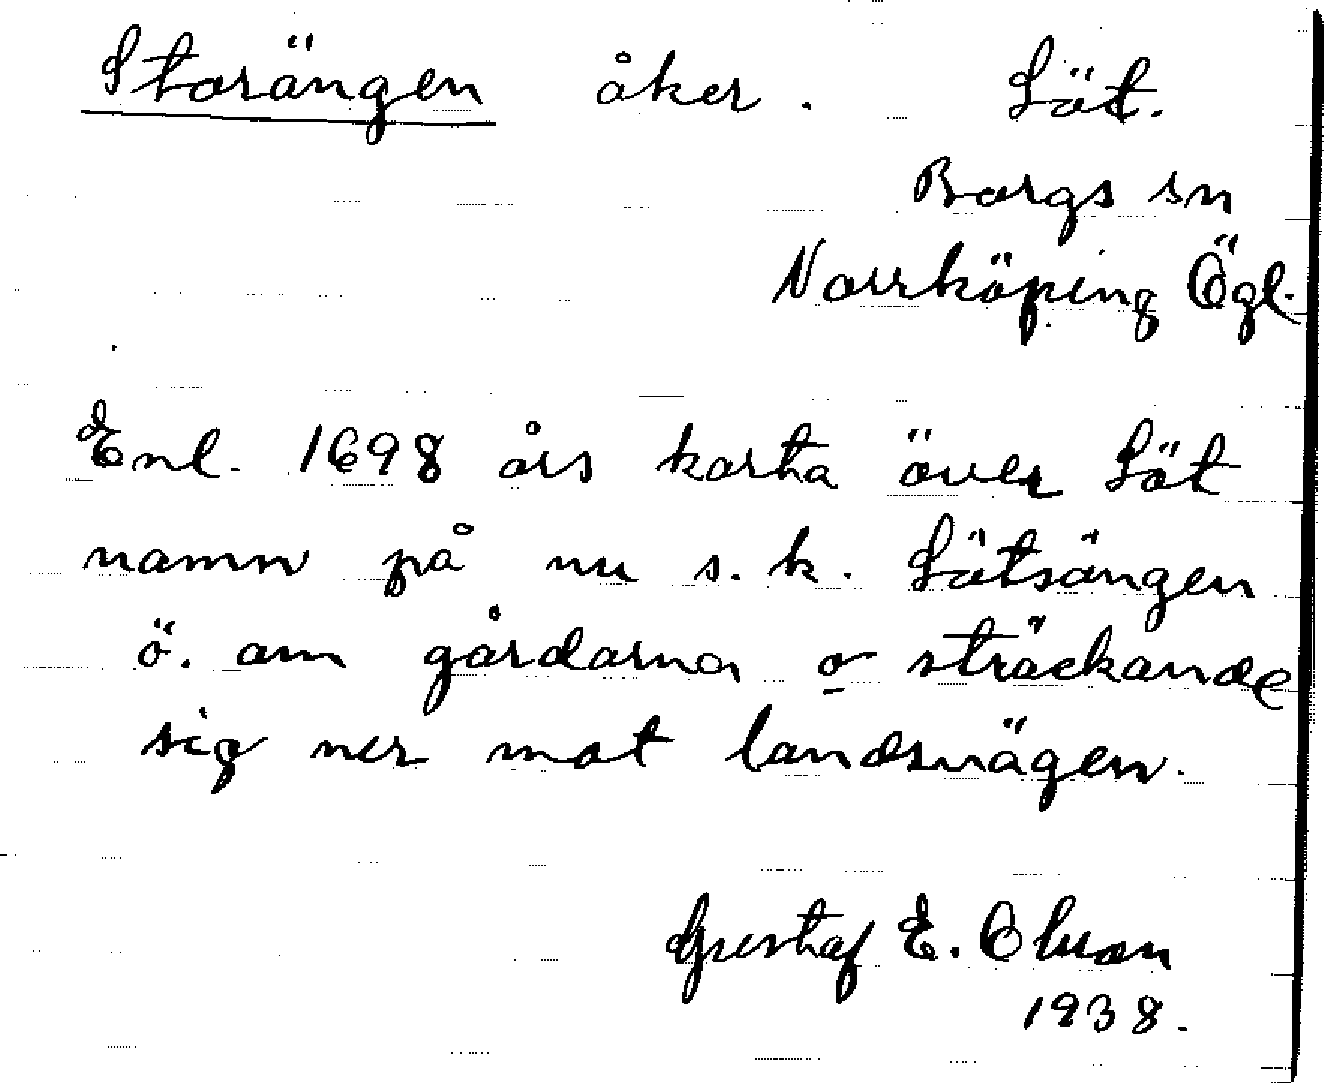 Storängen åker. Löt.
Borgs sn
Norrköping Ögl.
Enl. 1698 års karta över Löt
namn på nu s. k. Lötsängen
ö. om gårdarna o sträckande
sig ner mot landsvägen.
Gustaf E. Olsson
1938.